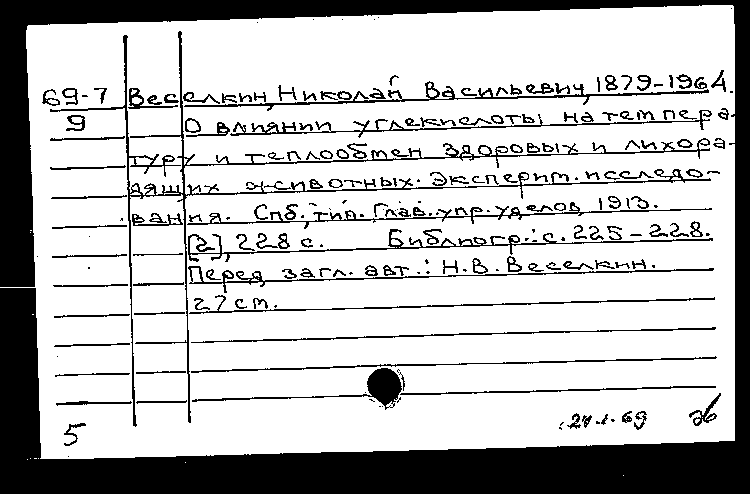 69-7 Веселкин, Николай Васильевич, 1879-1964.
9 О влиянии углекислоты на темпера-
туру и теплообмен здоровых и лихора-
дящих животных. Эксперим. исследо-
вания. Спб, тип. Глав. упр. уделов, 1913.
[2], 228 с. Библиогр.: с. 225-228.
Перед загл. авт.: Н.В. Веселкин.
27 см.
5 69